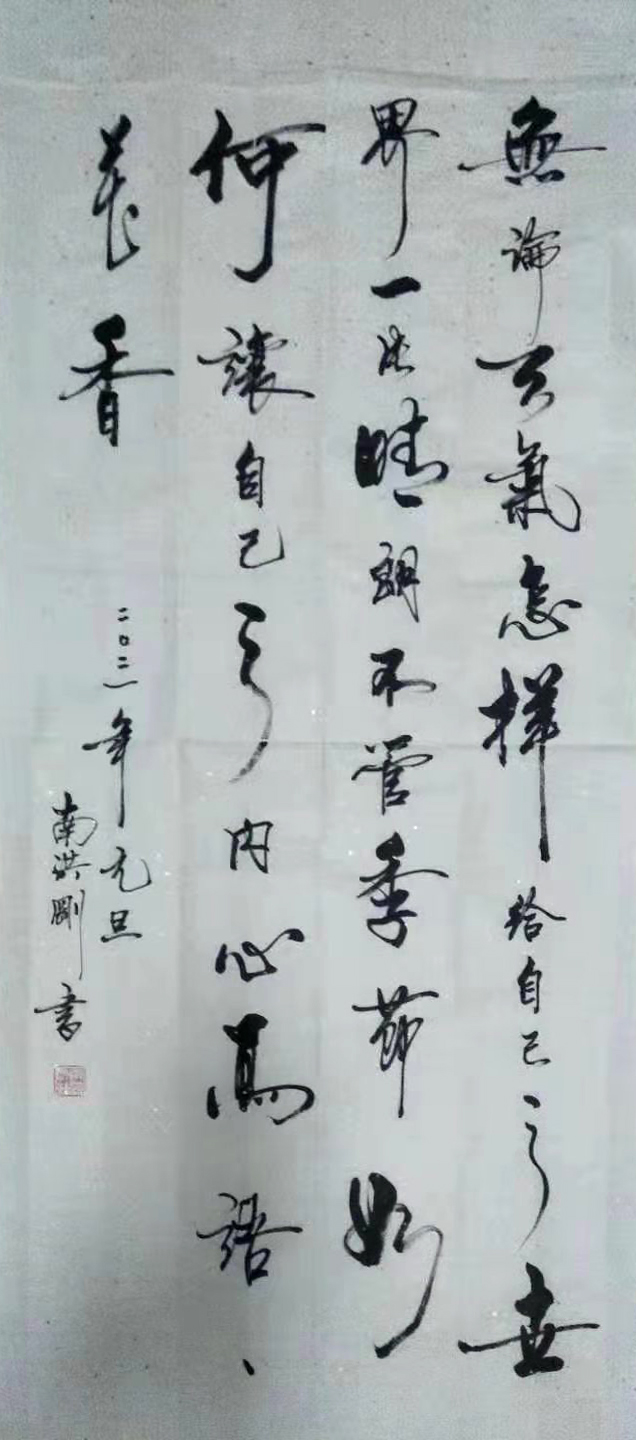 無論天氣怎樣给自己之世
界一片晴朗不管季節如
何讓自己之内心鳥語、
花香
二〇二一年元旦
南洪剛書